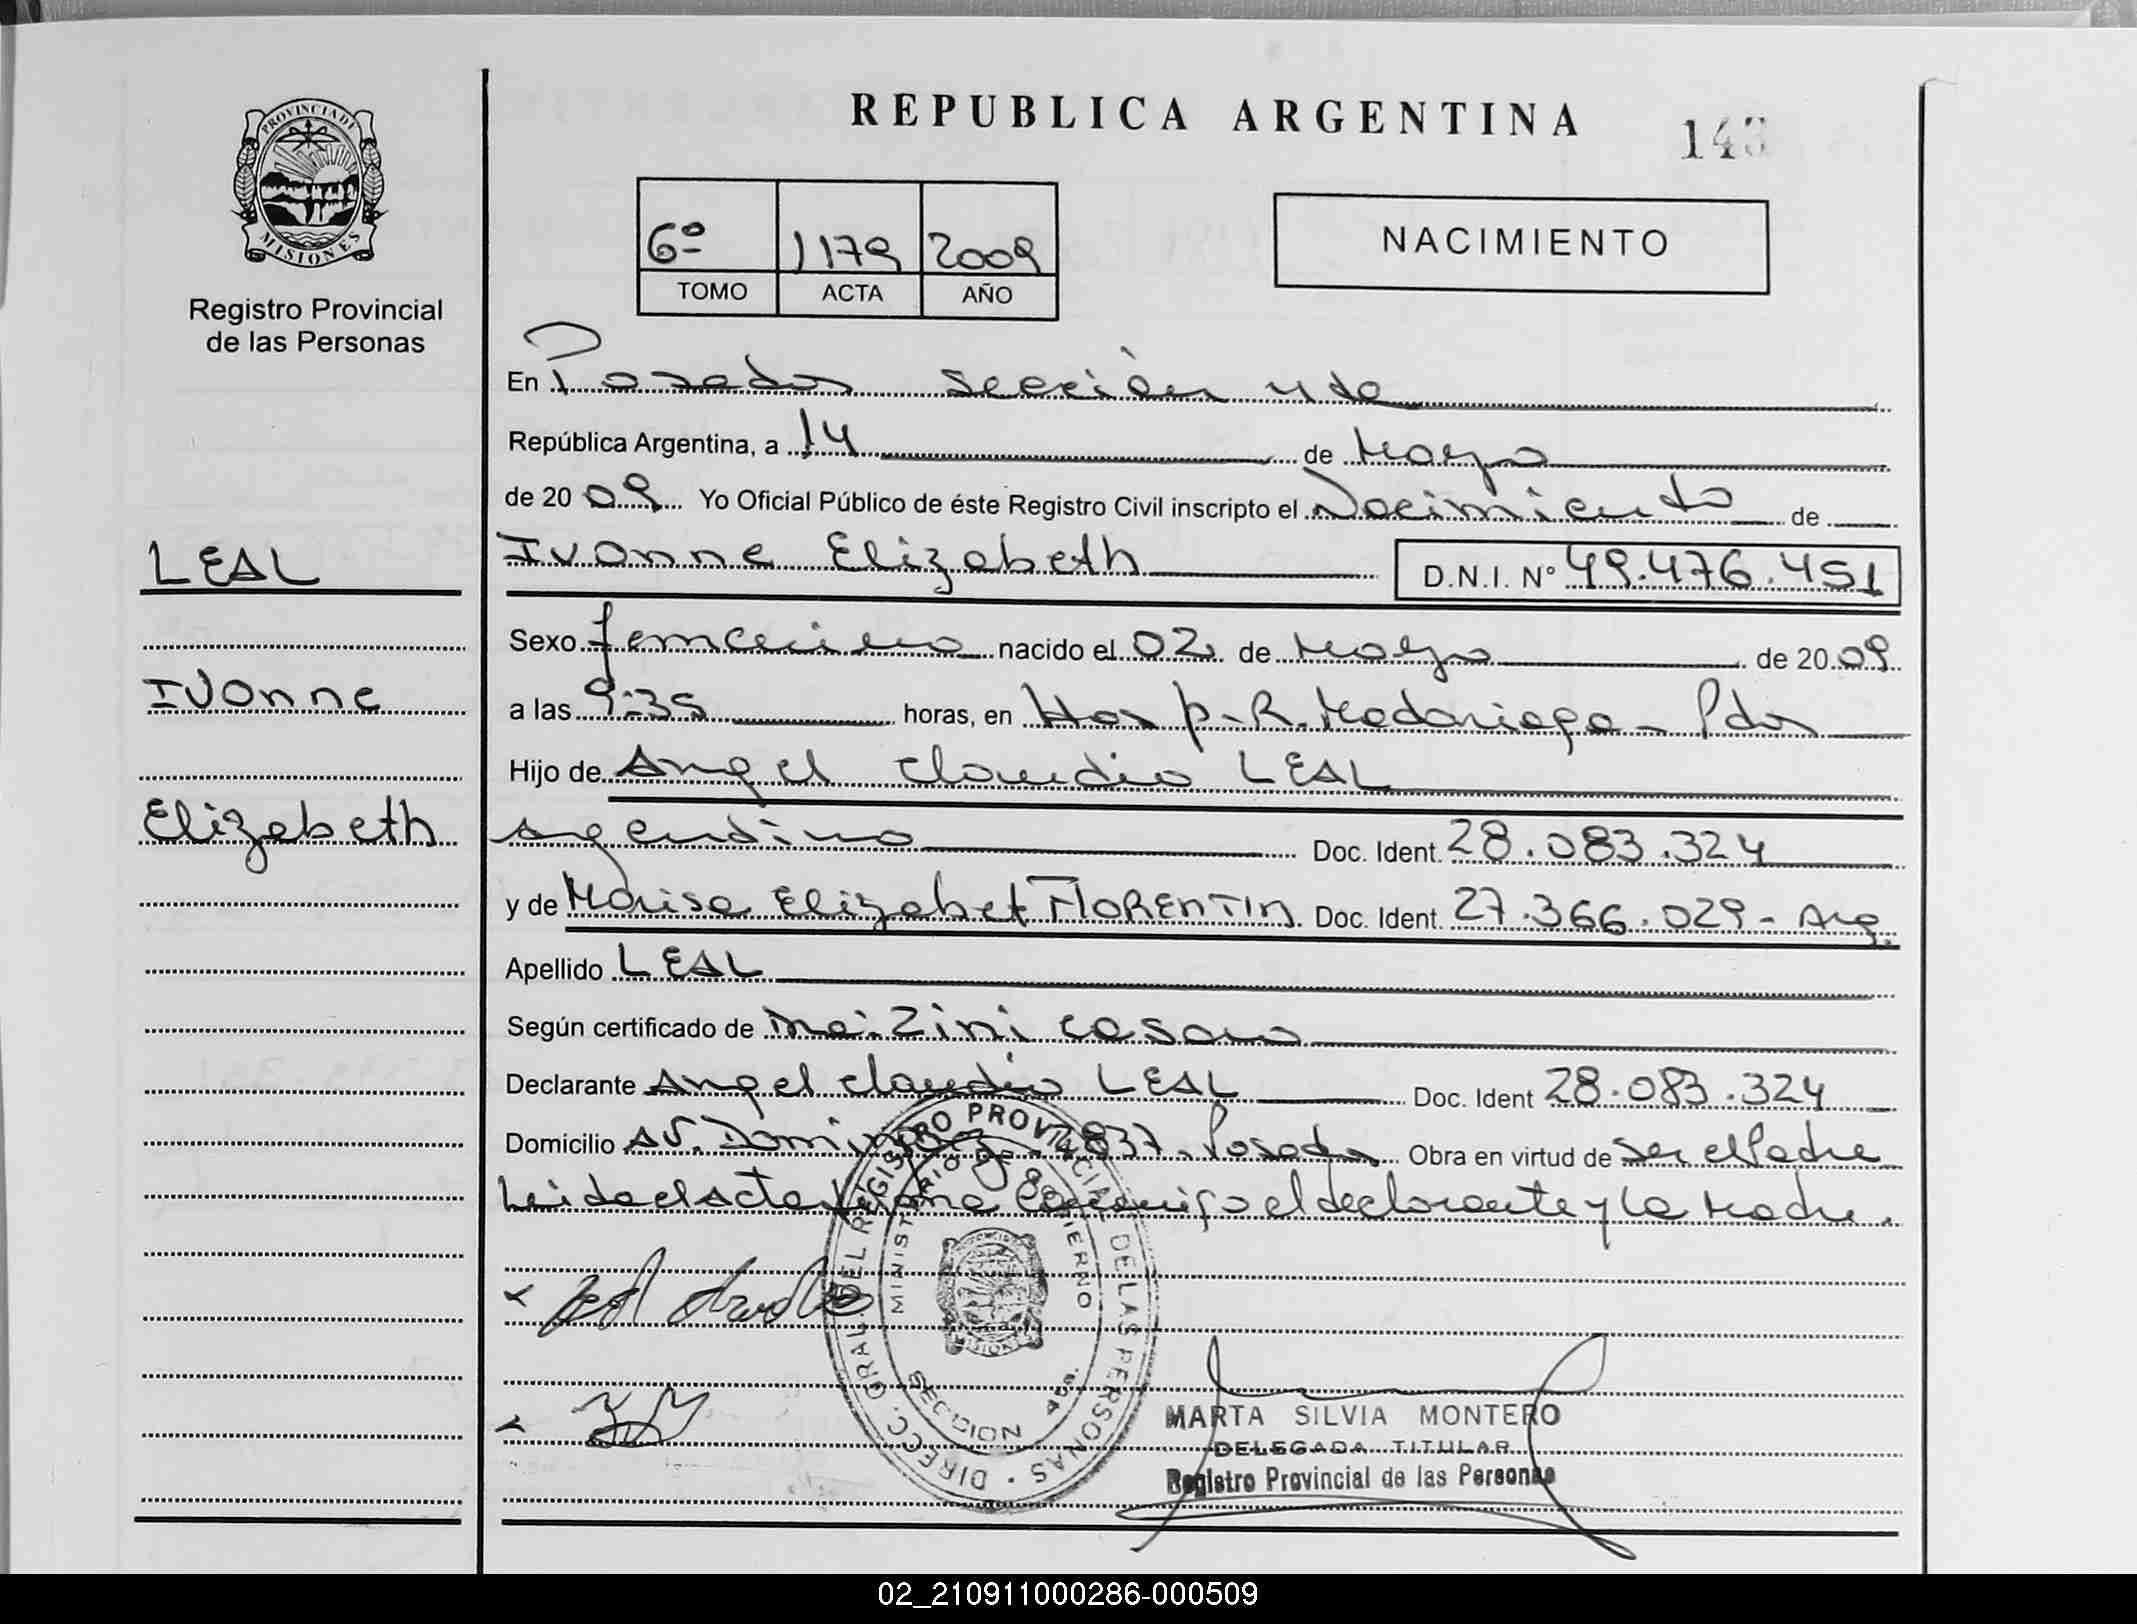 PROVINCIA DE
MISIONES
Registro Provincial
de las Personas
LEAL
Ivonne
Elizabeth
REPUBLICA ARGENTINA
143
6º 1179 2009
TOMO ACTA AÑO
NACIMIENTO
En Posadas sección 4ta
República Argentina, a 14 de Mayo
de 2009 Yo Oficial Público de éste Registro Civil inscripto el Nacimiento de
Ivonne Elizabeth D.N.I. Nº 49.476.451
Sexo femenino nacido el 02 de Mayo de 2009
a las 9:35 horas, en Hosp. R. Madariaga - Pdas
Hijo de Angel Claudio LEAL
Argentino Doc. Ident. 28.083.324
y de Marisa Elizabet FLORENTIN Doc. Ident. 27.366.029 - Arg.
Apellido LEAL
Según certificado de Zini
Declarante Angel Claudio LEAL Doc. Ident 28.083.324
Domicilio Av. 2837 - Posadas Obra en virtud de ser el Padre
Leida el Acta firma conmigo el declarante y la Madre.
DIRECC. GRAL. DEL REGISTRO PROVINCIAL DE LAS PERSONAS
MINISTERIO DE GOBIERNO
SECCION 4ta.
MARTA SILVIA MONTERO
DELEGADA TITULAR
Registro Provincial de las Personas
02_210911000286-000509